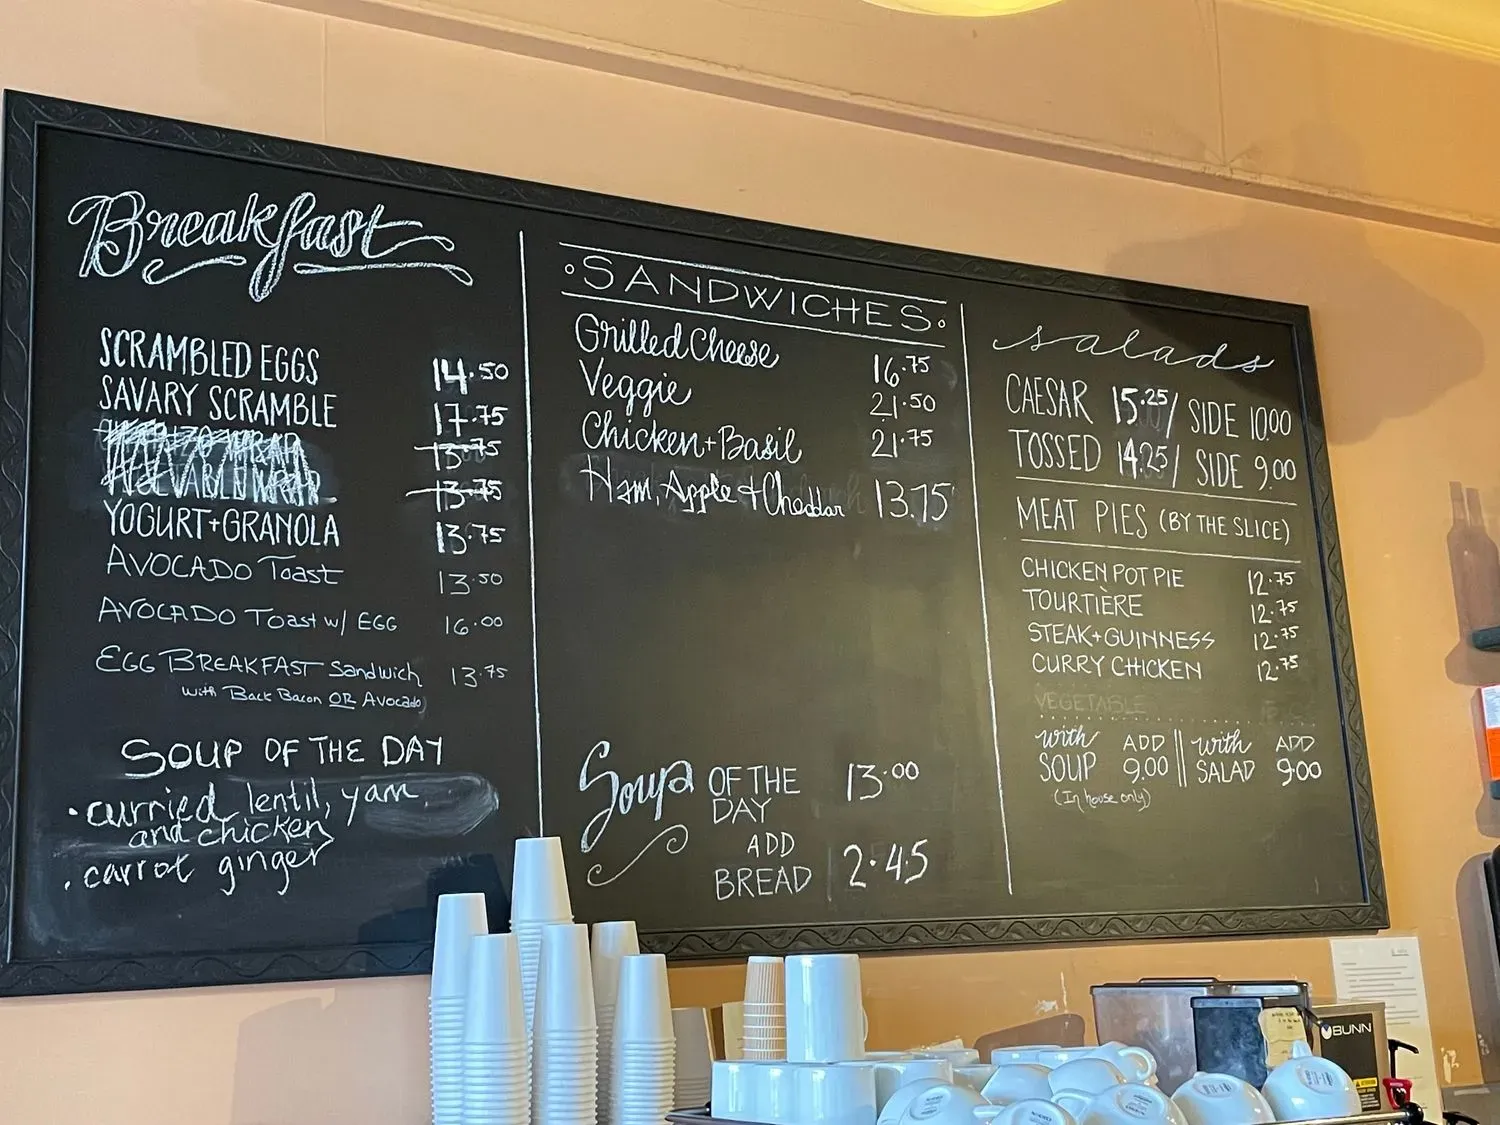 Breakfast
SCRAMBLED EGGS 14.50
SAVARY SCRAMBLE 17.75
13.75
13.75
YOGURT+GRANOLA 13.75
AVOCADO Toast 13.50
AVOCADO Toast w/ EGG 16.00
EGG BREAKFAST Sandwich 13.75
with Back Bacon OR Avocado
SOUP OF THE DAY
• curried lentil, yam
and chicken
• carrot ginger
SANDWICHES
Grilled Cheese 16.75
Veggie 21.50
Chicken + Basil 21.75
Ham, Apple + Cheddar 13.75
Soup OF THE DAY 13.00
ADD
BREAD 2.45
salads
CAESAR 15.25/ SIDE 10.00
TOSSED 14.25/ SIDE 9.00
MEAT PIES (BY THE SLICE)
CHICKEN POT PIE 12.75
TOURTIÈRE 12.75
STEAK+GUINNESS 12.75
CURRY CHICKEN 12.75
VEGETABLE
with SOUP ADD 9.00 || with SALAD ADD 9.00
(In house only)
BUNN